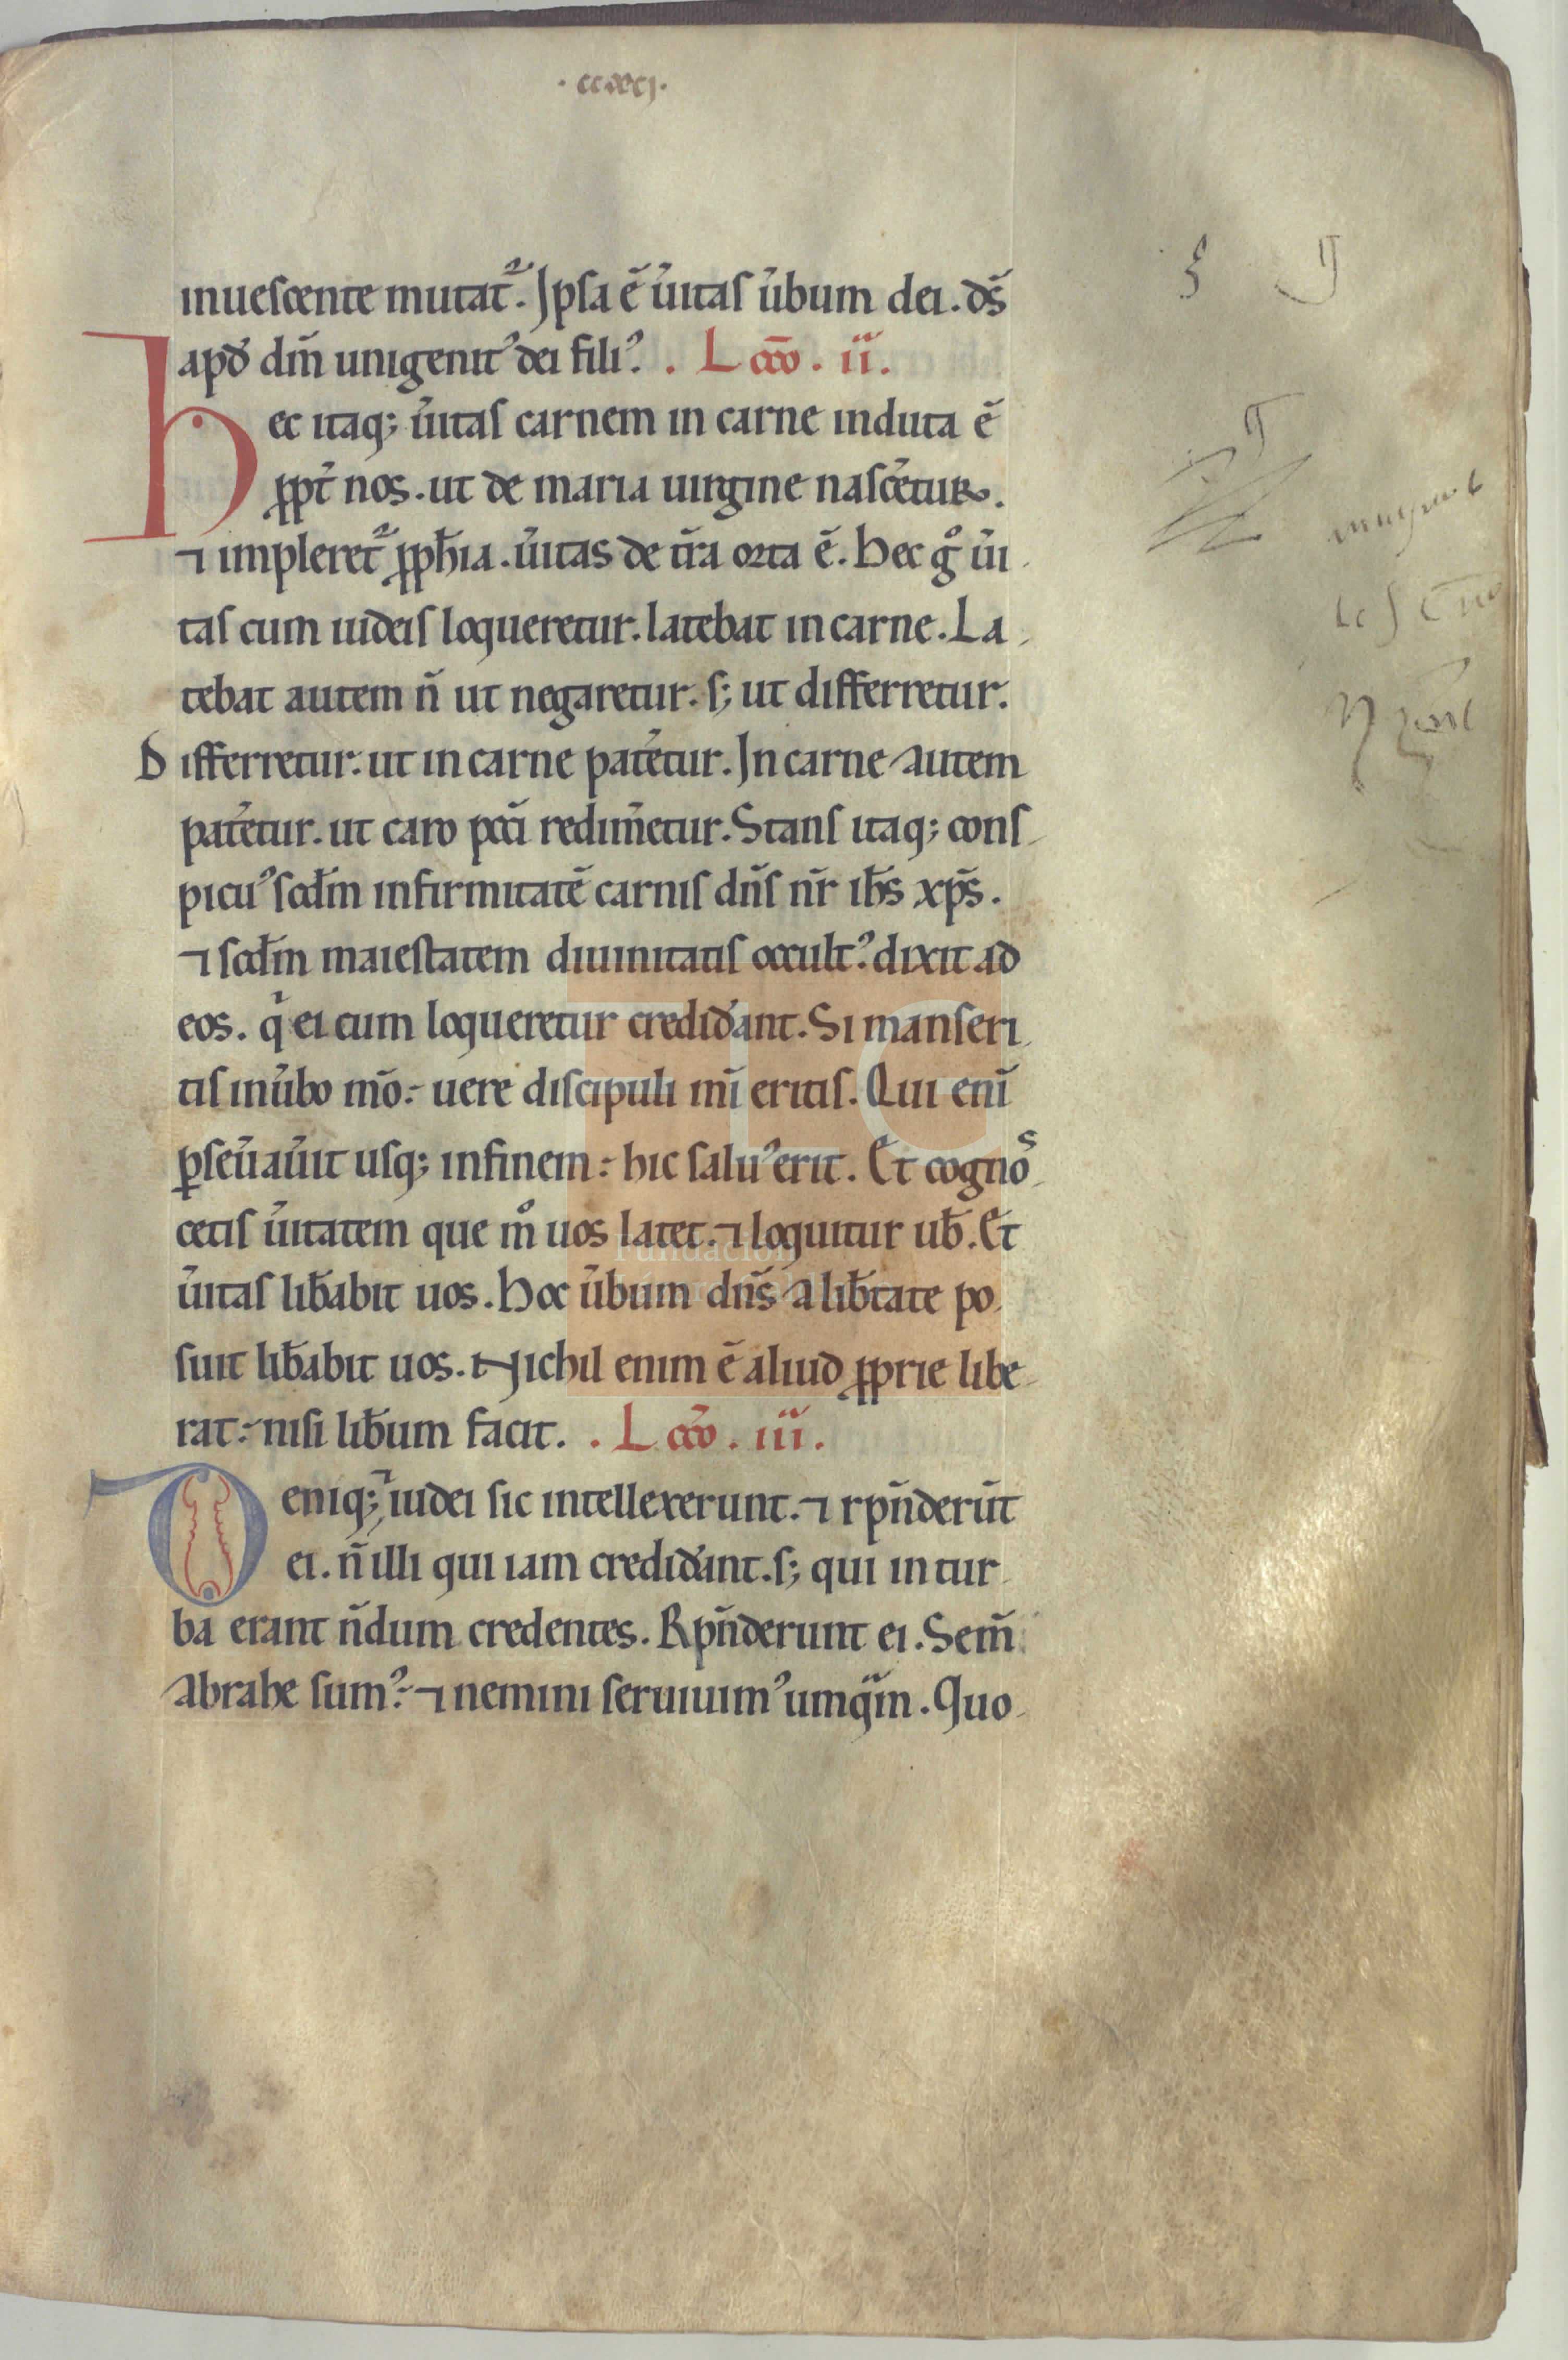 · ccxcj ·
inuescente mutat᷑. Ipsa ē ůitas ůbum dei. ds̄
apđ dm̄ unigenitꝰ dei filiꝰ. . L cc̄o . ii.
Hec itaq; ůitas carnem in carne induta ē
ꝓpt̉ nos. ut de maria uirgine nasc̉etur.
⁊ impleret᷑ ꝓph̄ia. ůitas de t̉ra orta ē. Hec gͦ ůi
tas cum iudeis loqueretur. latebat in carne. La
tebat autem n̄ ut negaretur. s; ut differretur.
Differretur. ut in carne pat̉etur. In carne autem
pat̉etur. ut caro pcc̄i redim̉etur. Stans itaq; cons
picuꝰ scd̄m infirmitatē carnis dn̄s nr̄ ih̄s xp̄s.
⁊ scd̄m maiestatem diuinitatis occultꝰ. dixit ad
eos. qͥ ei cum loqueretur credid̉ant. Si manseri
tis in ůbo mō. uere discipuli mī eritis. Qui enī
ꝑseůaůit usq; in finem. hic saluꝰ erit. Et cognos
cetis ůitatem que mͦ uos latet. ⁊ loquitur ub̄. Et
ůitas lib̄abit uos. Hoc ůbum dn̄s a lib̄tate po
suit lib̄abit uos. Nichil enim ē aliud ꝓprie libe
rat. nisi lib̄um facit. . L cc̄o . iii.
Deniq; ⁊ iudei sic intellexerunt. ⁊ rpn̄derūt
ei. n̄ illi qui iam credid̉ant. s; qui in tur
ba erant n̄dum credentes. Rpn̄derunt ei. Sem̄
Abrahe sumꝰ. ⁊ nemini seruiuimꝰ umqͣm. Quo